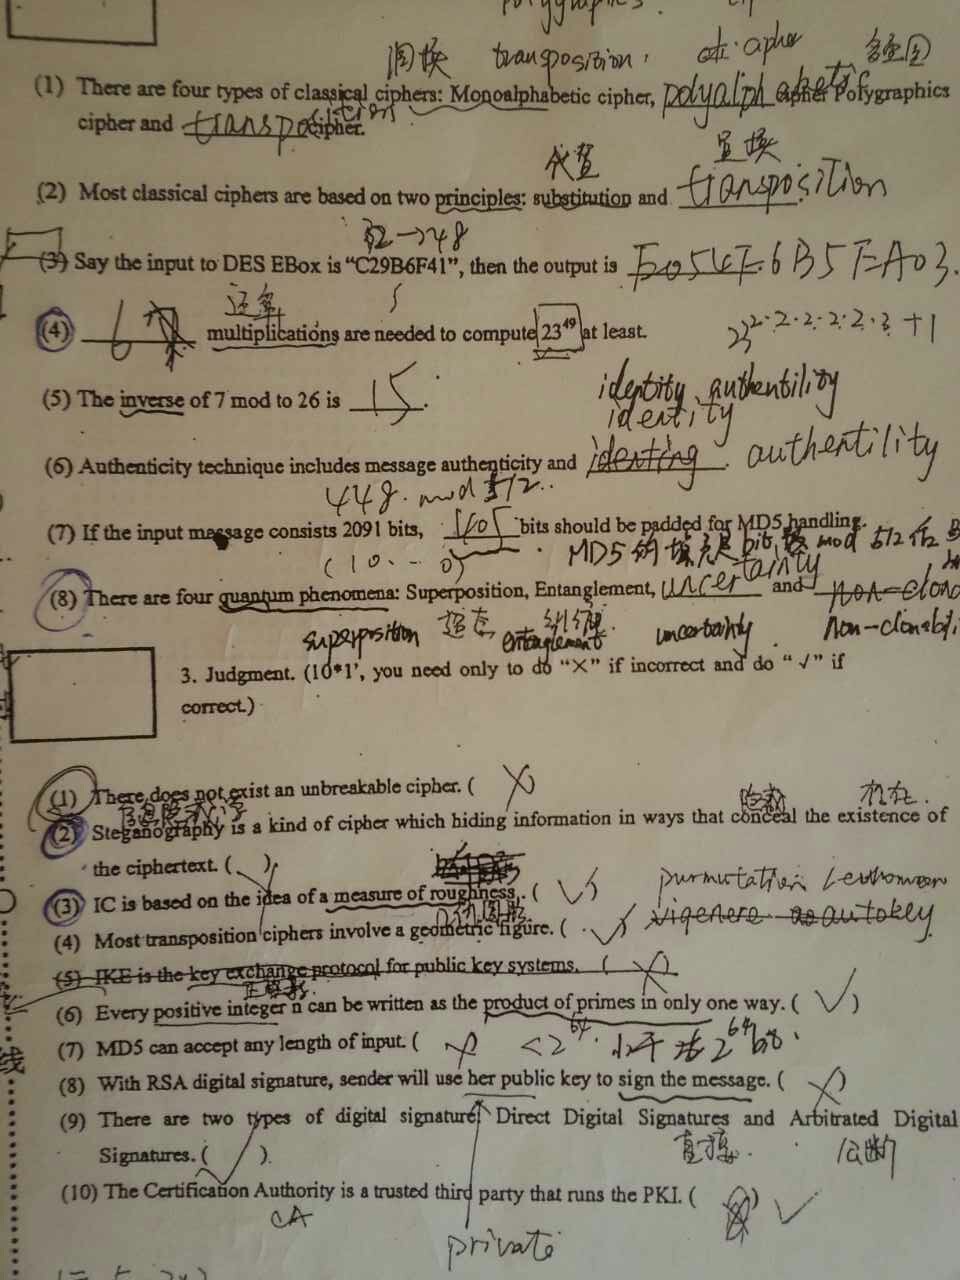 置换 transposition.
(1) There are four types of classical ciphers: Monoalphabetic cipher, polyalphabetic cipher Polygraphics
cipher and transposition cipher.
代替 置换
(2) Most classical ciphers are based on two principles: substitution and transposition
32→48
(3) Say the input to DES EBox is "C29B6F41", then the output is
(4) 6 multiplications are needed to compute 23^49 at least.
(5) The inverse of 7 mod to 26 is 15.
identity authentility
identity
(6) Authenticity technique includes message authenticity and identing authentility
448 mod 512..
(7) If the input message consists 2091 bits, 1405 bits should be padded for MD5 handling.
(10...0) MD5的填充是 bit mod 512
(8) There are four quantum phenomena: Superposition, Entanglement, uncertainty and non-clona
superposition entanglement uncertainty non-clonabili
3. Judgment. (10*1', you need only to do "×" if incorrect and do "√" if
correct.)
(1) There does not exist an unbreakable cipher. ( × )
隐藏 存在.
(2) Steganography is a kind of cipher which hiding information in ways that conceal the existence of
the ciphertext. ( √ )
(3) IC is based on the idea of a measure of roughness. ( √ )
几何图形
(4) Most transposition ciphers involve a geometric figure. ( √ ) vigenere autokey
(5) IKE is the key exchange protocol for public key systems. ( × )
正整数
(6) Every positive integer n can be written as the product of primes in only one way. ( √ )
(7) MD5 can accept any length of input. ( × <2^64. 小于 2^64 bit.
(8) With RSA digital signature, sender will use her public key to sign the message. ( × )
(9) There are two types of digital signature: Direct Digital Signatures and Arbitrated Digital
Signatures. ( √ ). 直接. 公断
(10) The Certification Authority is a trusted third party that runs the PKI. ( ) √
CA
private
线